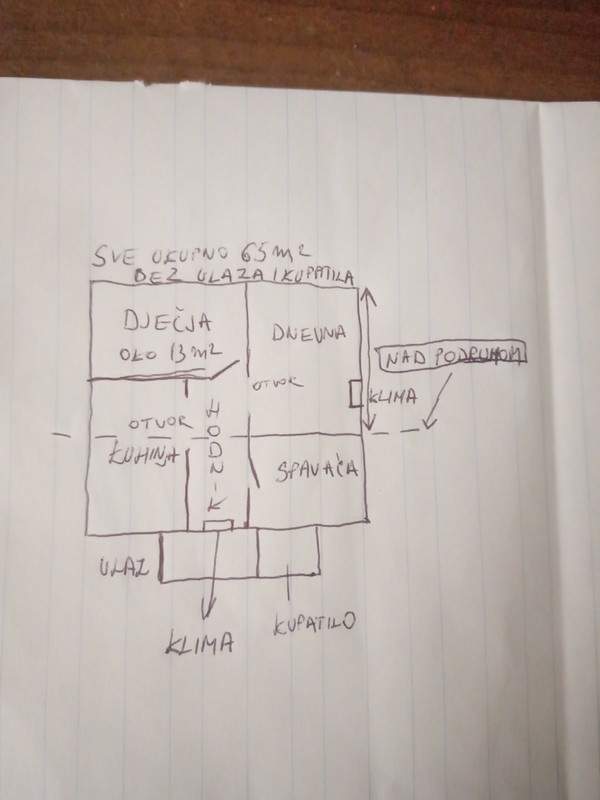 SVE UKUPNO 65 m2
BEZ ULAZA I KUPATILA
DJEČJA
OKO 13 m2
DNEVNA
NAD PODRUMOM
OTVOR
KLIMA
OTVOR
HODNIK
KUHINJA
SPAVAĆA
ULAZ
KLIMA
KUPATILO